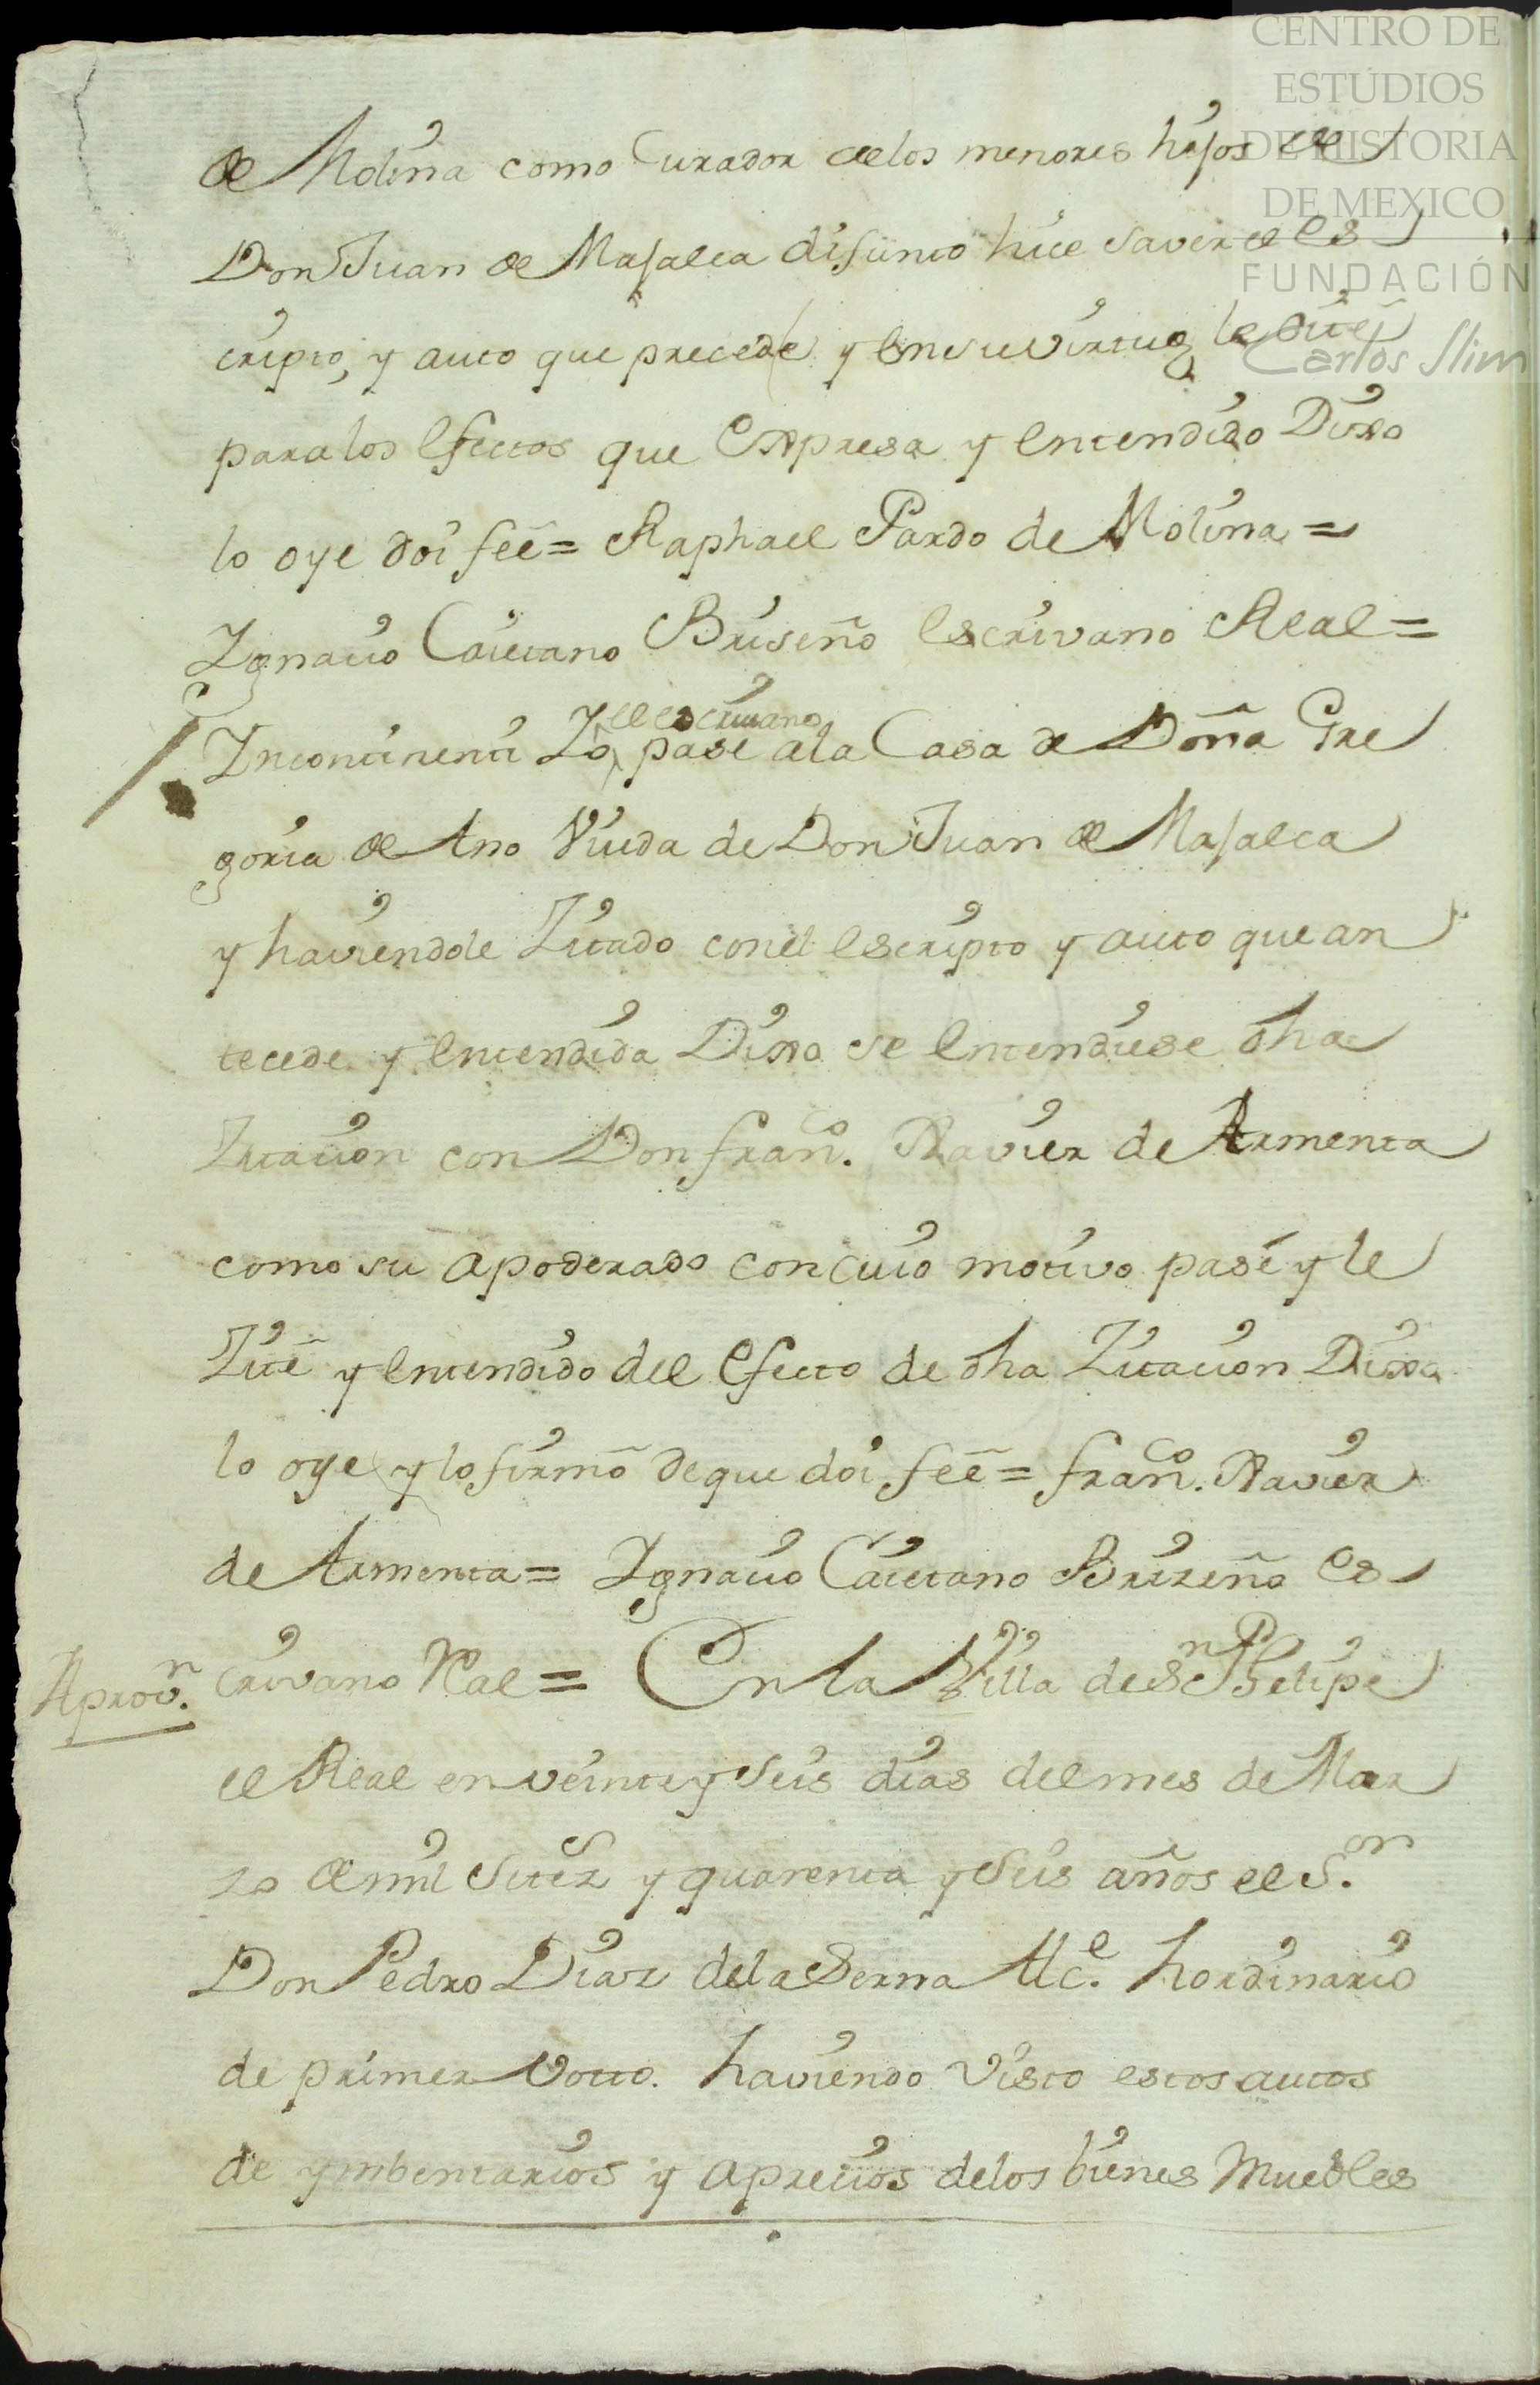 CENTRO DE
ESTUDIOS
DE HISTORIA
DE MEXICO
FUNDACIÓN
Carlos Slim
de Molina como Curador delos menores hijos de
Don Juan de Masalca difunto hice saver el es
cripto, y auto que precede y en su virtud le cité
para los efectos que expresa y entendido Dixo
lo oye doi feê = Raphael Pardo de Molina =
Ignacio Caietano Briseño escrivano Real =
Incontinenti Yo el escrivano pase ala Casa de Doña Gre
goria de Ano Viuda de Don Juan de Masalca
y haviendole Zitado con el escripto y auto que an
tecede y entendida Dixo se entendiese dha
Zitacion con Don Franco. Xavier de Armenta
como su apoderado con cuio motivo pasé y le
Zité y entendido del efecto de dha Zitacion Dixo
lo oye y lo firmô de que doi feê = Franco. Xavier
de Armenta = Ignacio Caietano Brizeño es
Aprovn. crivano Real = En la Villa de Sn Phelipe
el Real en veinte y seis dias del mes de Mar
zo de mil Setez y quarenta y seis años el Sor.
Don Pedro Diaz dela Serna Alce. hordinario
de primer votto. haviendo visto estos autos
de ymbentarios y aprecios delos bienes Muebles